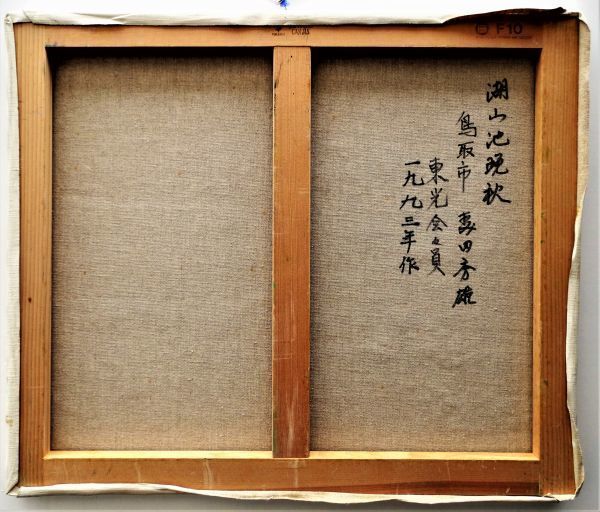 湖山池晩秋
鳥取市 森田秀雄
東光会々員
一九九三年作
F10